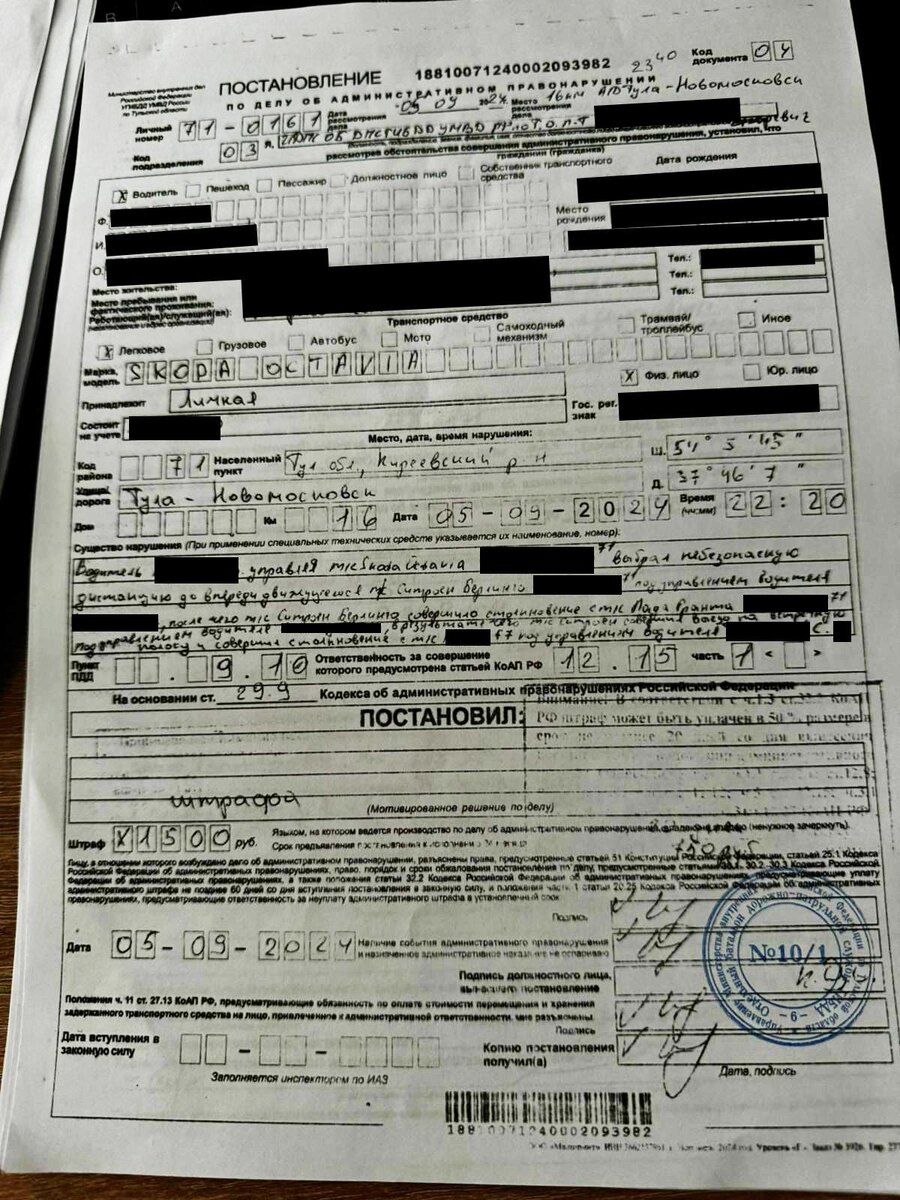 ПОСТАНОВЛЕНИЕ
18810071240002093982
2340
Код документа 04
Министерство внутренних дел
Российской Федерации
УГИБДД УМВД России
по Тульской области
ПО ДЕЛУ ОБ АДМИНИСТРАТИВНОМ ПРАВОНАРУШЕНИИ
Личный номер 71-0161
Дата рассмотрения дела 05 09 2024 Место рассмотрения 16км А/Д Тула-Новомосковск
Код подразделения 03 Я,
рассмотрев обстоятельства совершения административного правонарушения, установил, что
гражданин (гражданка)
X Водитель Пешеход Пассажир Должностное лицо Собственник транспортного средства
Дата рождения
Ф.
Место рождения
И.
О.
Тел.:
Место жительства:
Тел.:
Место пребывания или фактического проживания:
Тел.:
Работающий(ая)/служащий(ая):
Транспортное средство
X Легковое Грузовое Автобус Мото Самоходный механизм Трамвай/троллейбус Иное
Марка, модель SKODA OCTAVIA
X Физ. лицо Юр. лицо
Принадлежит Личная
Гос. рег. знак
Состоит на учете
Место, дата, время нарушения:
Код района 71 Населенный пункт Тул обл, Киреевский р-н
Ш. 54° 5' 45"
Д. 37° 46' 7"
Улица/дорога Тула - Новомосковск
Дом Км 16 Дата 05-09-2024 Время (чч:мм) 22:20
Существо нарушения (При применении специальных технических средств указывается их наименование, номер):
Водитель управляя т/с Skoda Octavia 71 выбрал небезопасную
дистанцию до впереди движущегося т/с Ситроен Берлинго 71 под управлением водителя
, после чего т/с Ситроен Берлинго совершило столкновение с т/с Лада Гранта 71
под управлением водителя , в результате чего т/с Ситроен совершил выезд на встречную
полосу и совершил столкновение с т/с 67 под управлением водителя С.
Пункт ПДД 9.10 Ответственность за совершение которого предусмотрена статьей КоАП РФ 12.15 часть 1 < >
На основании ст. 29.9 Кодекса об административных правонарушениях Российской Федерации
ПОСТАНОВИЛ:
Внимание! В соответствии с ч.1.3 ст.32.2 КоАП
РФ штраф может быть уплачен в 50 % размере в
срок не позднее 20 дней со дня вынесения
штрафой
(Мотивированное решение по делу)
Штраф X1500 руб.
Языком, на котором ведется производство по делу об административном правонарушении, (ненужное зачеркнуть).
Срок предъявления постановления к исполнению
750 руб
Лицу, в отношении которого возбуждено дело об административном правонарушении, разъяснены права, предусмотренные статьей 51 Конституции Российской Федерации, статьей 25.1 Кодекса
Российской Федерации об административных правонарушениях, право, порядок и сроки обжалования постановления по делу, предусмотренные статьями 30.1, 30.2, 30.3 Кодекса Российской
Федерации об административных правонарушениях, а также положения статьи 32.2 Кодекса Российской Федерации об административных правонарушениях, предусматривающие уплату
административного штрафа не позднее 60 дней со дня вступления постановления в законную силу, и положения части 1 статьи 20.25 Кодекса Российской Федерации об административных
правонарушениях, предусматривающие ответственность за неуплату административного штрафа в установленный срок
Подпись
Дата 05-09-2024
Наличие события административного правонарушения
и назначенное административное наказание не оспариваю
Подпись должностного лица,
вынесшего постановление
№10/1
Положения ч. 11 ст. 27.13 КоАП РФ, предусматривающие обязанность по оплате стоимости перемещения и хранения
задержанного транспортного средства на лицо, привлеченное к административной ответственности, мне разъяснены.
Подпись
Дата вступления в законную силу
Копию постановления получил(а)
Дата, подпись
Заполняется инспектором по ИАЗ
18810071240002093982